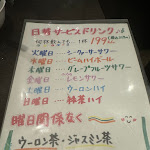 日替サービスドリンク♪
何杯飲んでも 199円
月曜日 … シークワーサーサワー
火曜日 … ビームハイボール
水曜日 … グレープフルーツサワー
木曜日 … レモンサワー
金曜日 … ウーロンハイ
日曜日 … 緑茶ハイ
曜日関係なく
ウーロン茶・ジャスミン茶